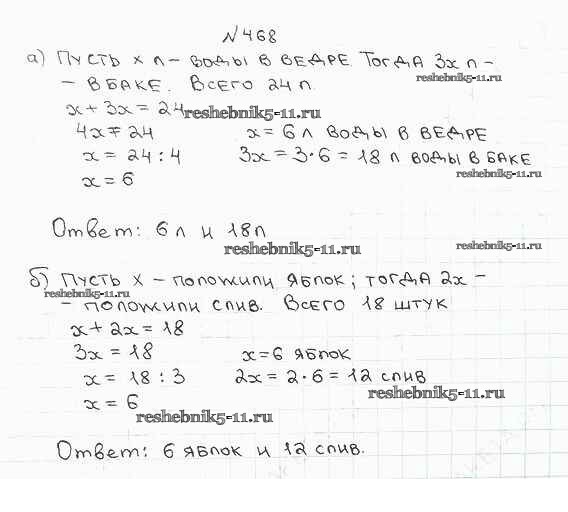 №468
а) Пусть x л – воды в ведре. Тогда 3x л –
reshebnik5-11.ru
– в баке. Всего 24 л.
x + 3x = 24
reshebnik5-11.ru
4x = 24 x = 6 л воды в ведре
x = 24 : 4 3x = 3·6 = 18 л воды в баке
reshebnik5-11.ru
x = 6
Ответ: 6 л и 18 л
reshebnik5-11.ru reshebnik5-11.ru
б) Пусть x – положили яблок; тогда 2x –
reshebnik5-11.ru
– положили слив. Всего 18 штук
x + 2x = 18
3x = 18 x = 6 яблок
x = 18 : 3 2x = 2·6 = 12 слив
reshebnik5-11.ru
x = 6
reshebnik5-11.ru
Ответ: 6 яблок и 12 слив.